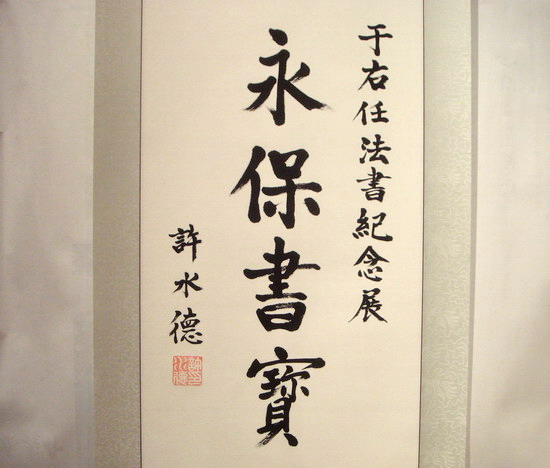 于右任法書紀念展
永保書寶
許水德